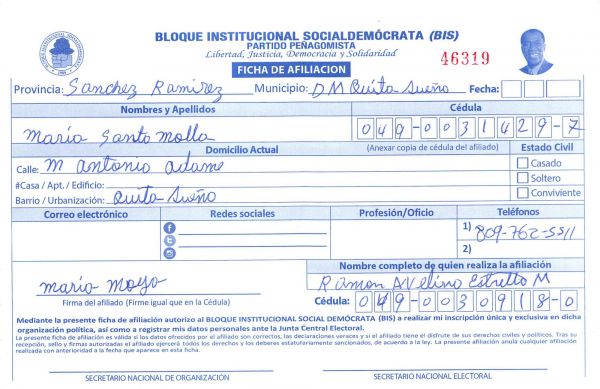 BLOQUE INSTITUCIONAL SOCIALDEMÓCRATA (BIS)
PARTIDO PEÑAGOMISTA
Libertad, Justicia, Democracia y Solidaridad
46319
FICHA DE AFILIACION
Provincia: Sanchez Ramirez Municipio: D M Quita Sueño Fecha:
Nombres y Apellidos Cédula
Maria Santo Molla 049-0031429-7
Domicilio Actual (Anexar copia de cédula del afiliado) Estado Civil
Calle: M antonio adame Casado
#Casa / Apt. / Edificio: Soltero
Barrio / Urbanización: Quita Sueño Conviviente
Correo electrónico Redes sociales Profesión/Oficio Teléfonos
1) 809-762-5511
2)
Nombre completo de quien realiza la afiliación
maria moya Ramon Avelino Estrella M
Firma del afiliado (Firme igual que en la Cédula) Cédula: 049-0030918-0
Mediante la presente ficha de afiliación autorizo al BLOQUE INSTITUCIONAL SOCIAL DEMÓCRATA (BIS) a realizar mi inscripción única y exclusiva en dicha
organización política, así como a registrar mis datos personales ante la Junta Central Electoral.
La presente ficha de afiliación es válida si los datos ofrecidos por el afiliado son correctos, las declaraciones veraces y si el afiliado tiene el disfrute de sus derechos civiles y políticos. Tras su
recepción, sello y firmas autorizadas el afiliado ejercerá todos los derechos y los deberes estatutariamente sancionados, de acuerdo a la ley. La presente afiliación anula cualquier afiliación
realizada con anterioridad a la fecha que aparece en esta ficha.
SECRETARIO NACIONAL DE ORGANIZACIÓN SECRETARIO NACIONAL ELECTORAL